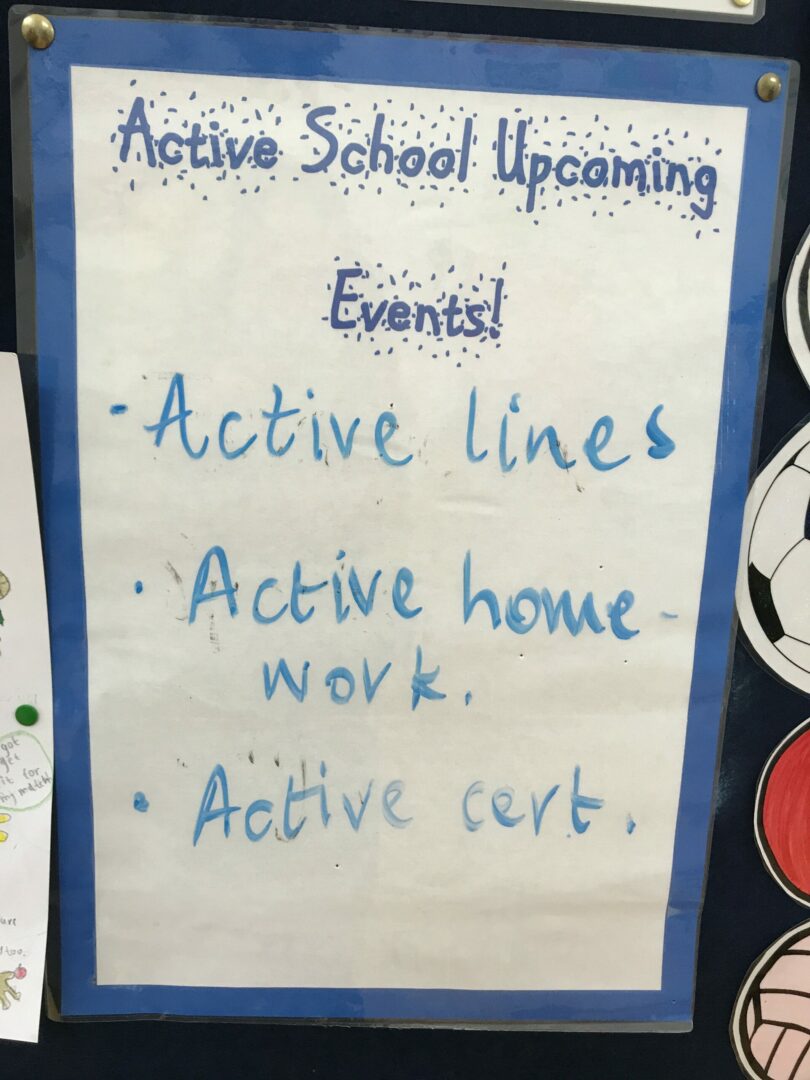 Active School Upcoming
Events!
- Active lines
• Active home-
work.
• Active cert.
got
get
it for
my match
too.